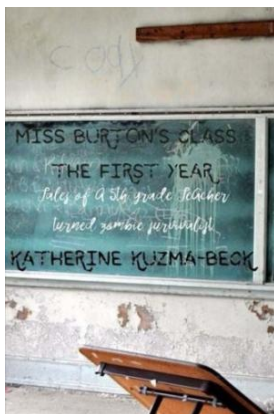 cody
MISS BURTON'S CLASS
THE FIRST YEAR
Tales of A 5th grade Teacher
turned zombie survivalist
KATHERINE KUZMA-BECK